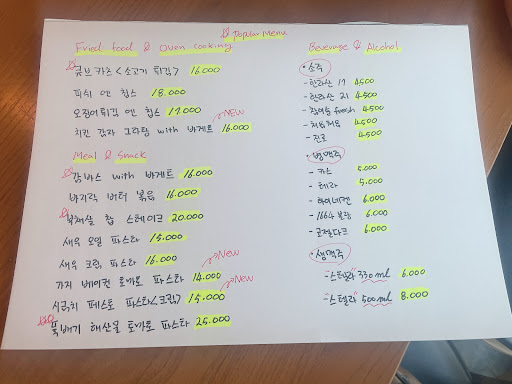 Popular Menu
Fried food & Oven cooking
큐브 카츠 <소고기 튀김> 16.000
피쉬 앤 칩스 18.000
오징어튀김 앤 칩스 17.000
New
치킨 감자 그라탕 with 바게트 16.000
Meal & Snack
감바스 with 바게트 16.000
바지락 버터 볶음 16.000
부채살 찹 스테이크 20.000
새우 오일 파스타 15.000
새우 크림 파스타 16.000
New
가지 베이컨 토마토 파스타 14.000
New
시금치 페스토 파스타<크림> 15.000
뚝배기 해산물 토마토 파스타 25.000
Beverage & Alcohol
소주
- 한라산 17 4500
- 한라산 21 4.500
- 참이슬 fresh 4.500
- 처음처럼 4.500
- 진로 4.500
병맥주
- 카스 5.000
- 테라 5.000
- 하이네켄 6.000
- 1664 블랑 6.000
- 코젤다크 6.000
생맥주
- "스텔라" 330ml 6.000
- "스텔라" 500ml 8.000